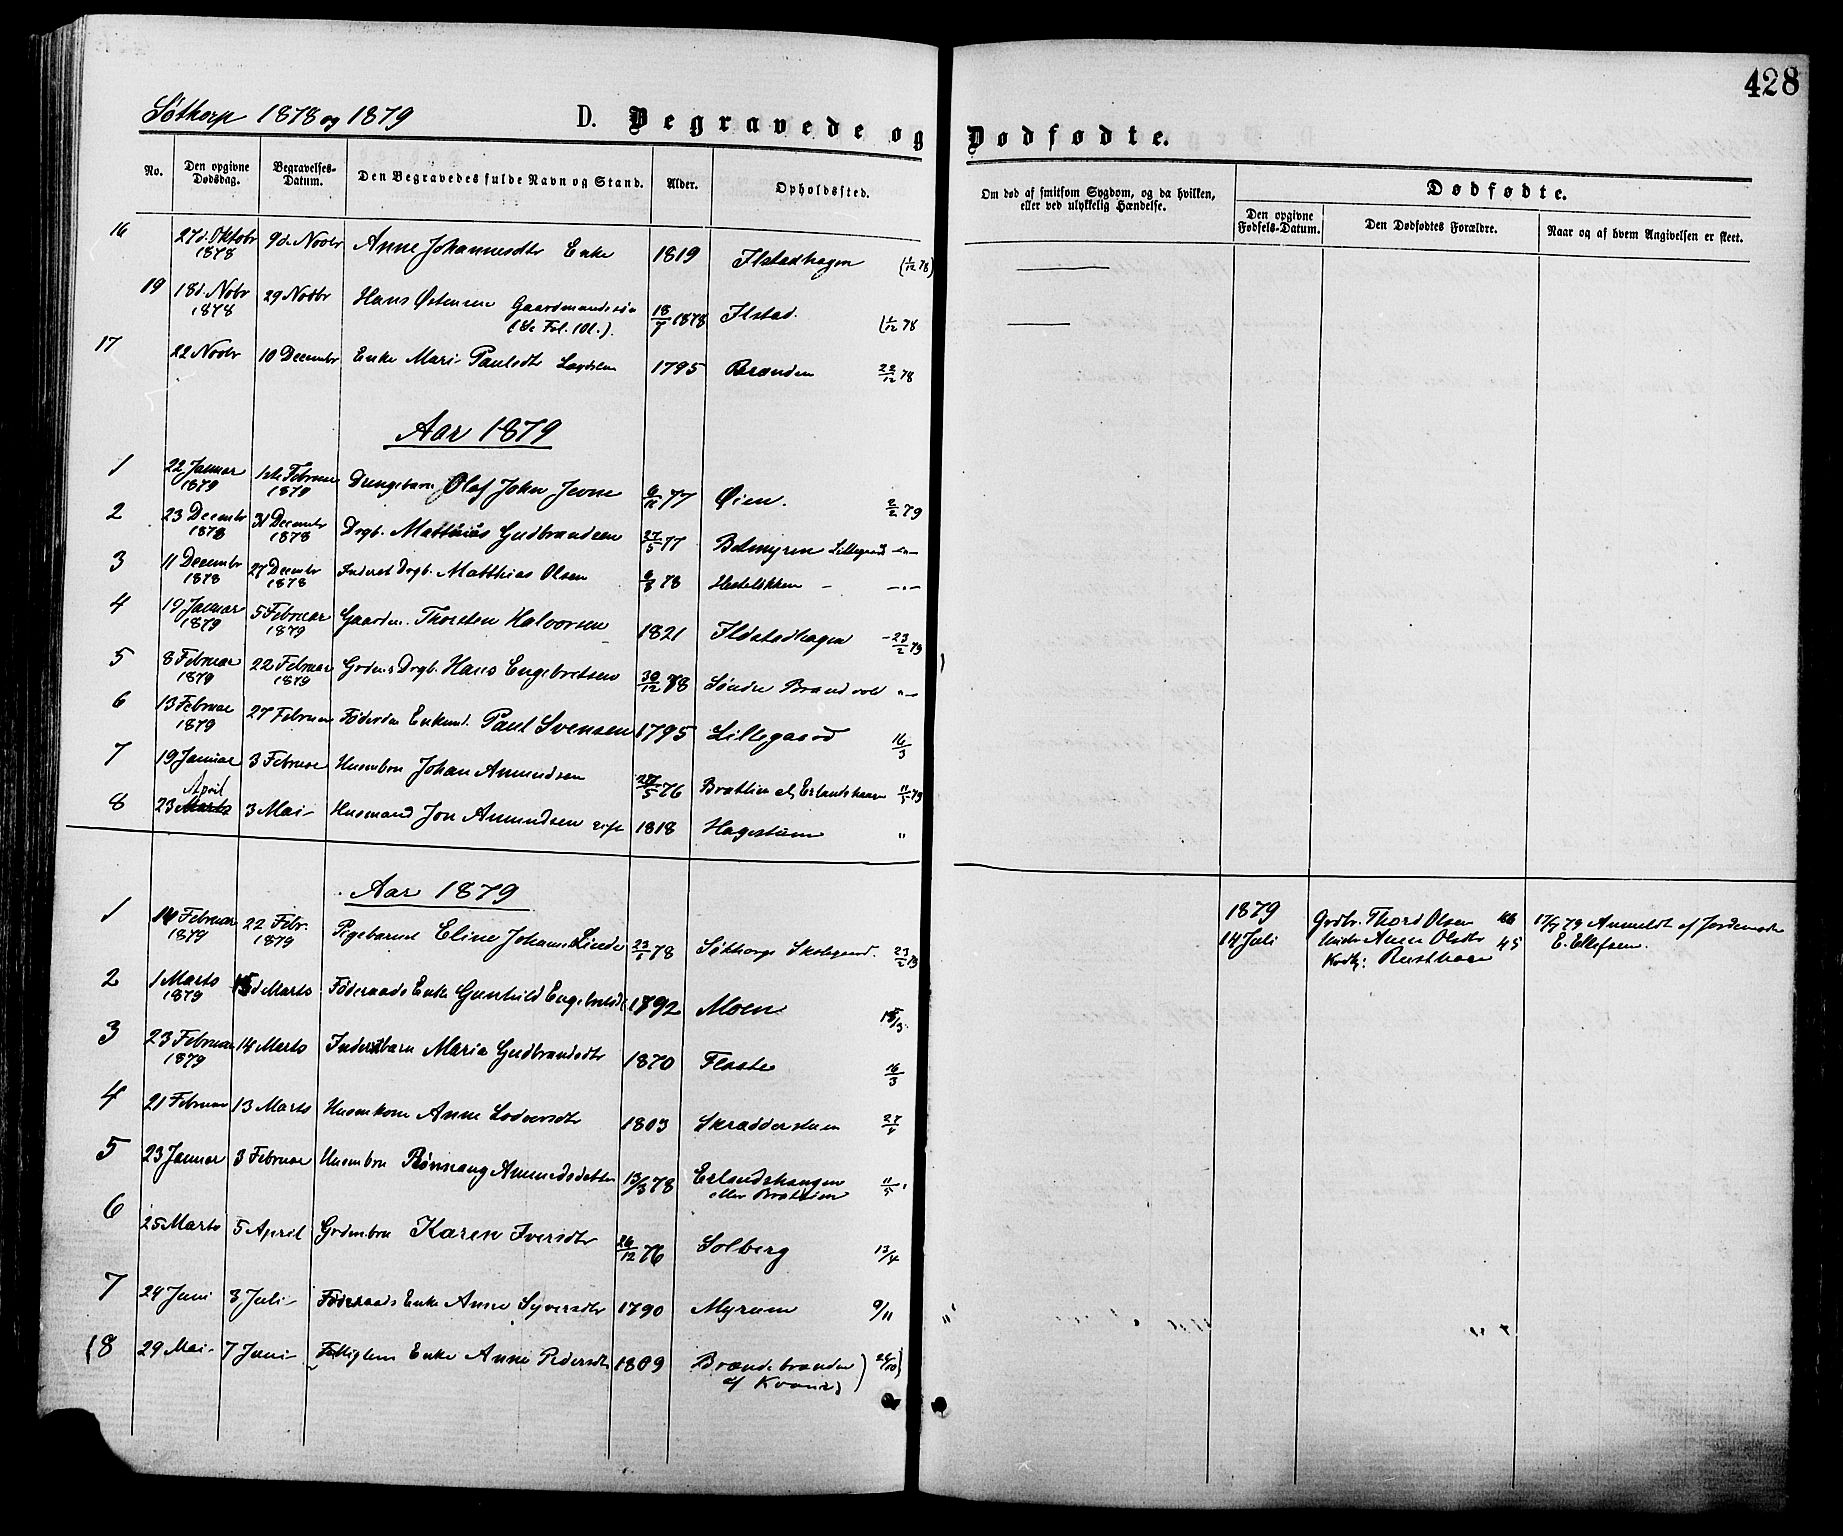 428
Søthorp 1878 og 1879 D. Begravede og Dødfødte.
No. Den opgivne Dødsdag. Begravelses-Datum. Den Begravedes fulde Navn og Stand. Alder. Opholdssted.
Om død af smitsom Sygdom, og da hvilken, eller ved ulykkelig Hændelse.
Dødfødte.
Den opgivne Fødsels-Datum. Den Dødfødtes Forældre. Naar og af hvem Angivelsen er skeet.
16 27d. Oktobr 1878 9d. Novbr Anne Johannesdtr Enke 1819 Ilstadhagen (1/12 78)
19 18d. Nobr 1878 29 Novbr Hans Østensen Gaardmandssøn 18/7 1878 Ilstad. (1/12 78
17 22 Novbr 10 Decembr Enke Mari Paulsdtr 1795 Brænden 22/12 78
Aar 1879
1 22 Januar 1879 1ste Februar 1879 Drengebarn Olaf John Jevne 6/12 77 Øien. 2/2 79
2 23 Decembr 1878 31 Decembr 1878 Drgb. Matthias Gudbrandsen 27/5 77 Botmyren Lillegaard -"-
3 11 Decembr 1878 27 Decembr 1878 Inderst Drgb. Matthias Olsen 6/8 78 Hesteløkken - -"-
4 19 Januar 1879 5 Februar 1879 Gaardm. Thorsten Halvorsen 1821 Ildstadhagen - 23/2 79
5 8 Februar 1879 22 Februar 1879 Grdms Drgb. Hans Engebretsen 30/12 78 Søndre Brandvold "-
6 13 Februar 1879 27 Februar Føderaads Enkemd. Paul Svensen 1795 Lillegaard 16/3
7 19 Januar 3 Februar Husmbrn Johan Amundsen 27/5 76 Bratlien el. Erlandshaugen 11/5 79
8 23 April 3 Mai Husmand Jon Amundsen gift 1818 Hagestuen "
Aar 1879
1 14 Februar 1879 22 Febr. 1879 Pigebarnet Eline Johanne Linde 23/1 78 Søthorps Skolegaard. 23/2 79
1879 14 Juli Grdbr. Thord Olsen 46 17/7 79 Anmeldt af Jordemoder
Hustr. Anne Olsdtr 45 E. Ellefsen.
Kvdkj: Rusthaae
2 1 Marts 1879 15d Marts Føderaads Enke Gunhild Engebretsdtr 1792 Moen 15/3
3 23 Februar 1879 14 Marts Inderstbarn Maria Gudbrandsdtr 1870 Flaate 16/3
4 21 Februar 13 Marts Husmkone Anne Lodversdtr 1803 Skrædderstuen 27/4
5 23 Januar 3 Februar Husmbrn Rønnaug Amundsdatter 13/3 78 Erlandshaugen 11/5
eller Bratlien
6 25 Marts 5 April Grdmbrn Karen Iversdtr 26/12 76 Solberg 13/4
7 24 Juni 3 Juli Føderaads Enke Anne Syversdtr 1790 Myrum 9/11
(8 29 Mai 7 Juni Fattiglem Enke Anne Pedersdtr 1809 Brændebranden ) 26/10)
af Kvams